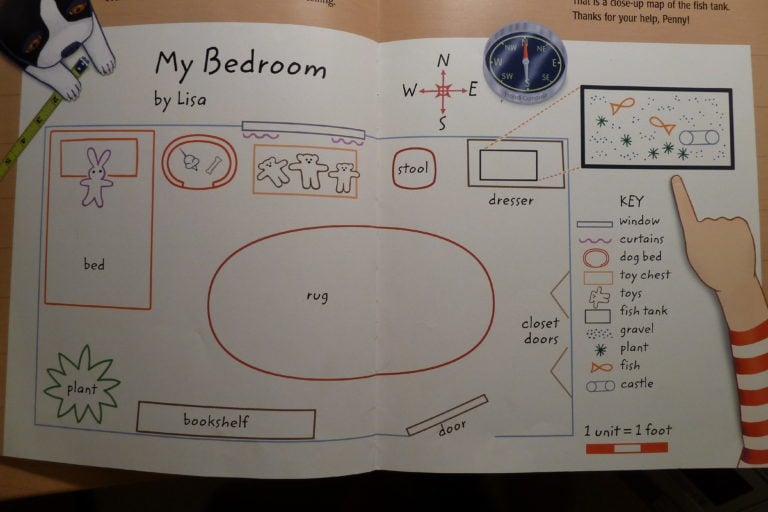 That is a close-up map of the fish tank.
Thanks for your help, Penny!
My Bedroom
by Lisa
N
W E
S
N
NW NE
W E
SW SE
S
2
3
4
5
stool
dresser
bed
rug
closet
doors
plant
bookshelf
door
KEY
window
curtains
dog bed
toy chest
toys
fish tank
gravel
plant
fish
castle
1 unit = 1 foot